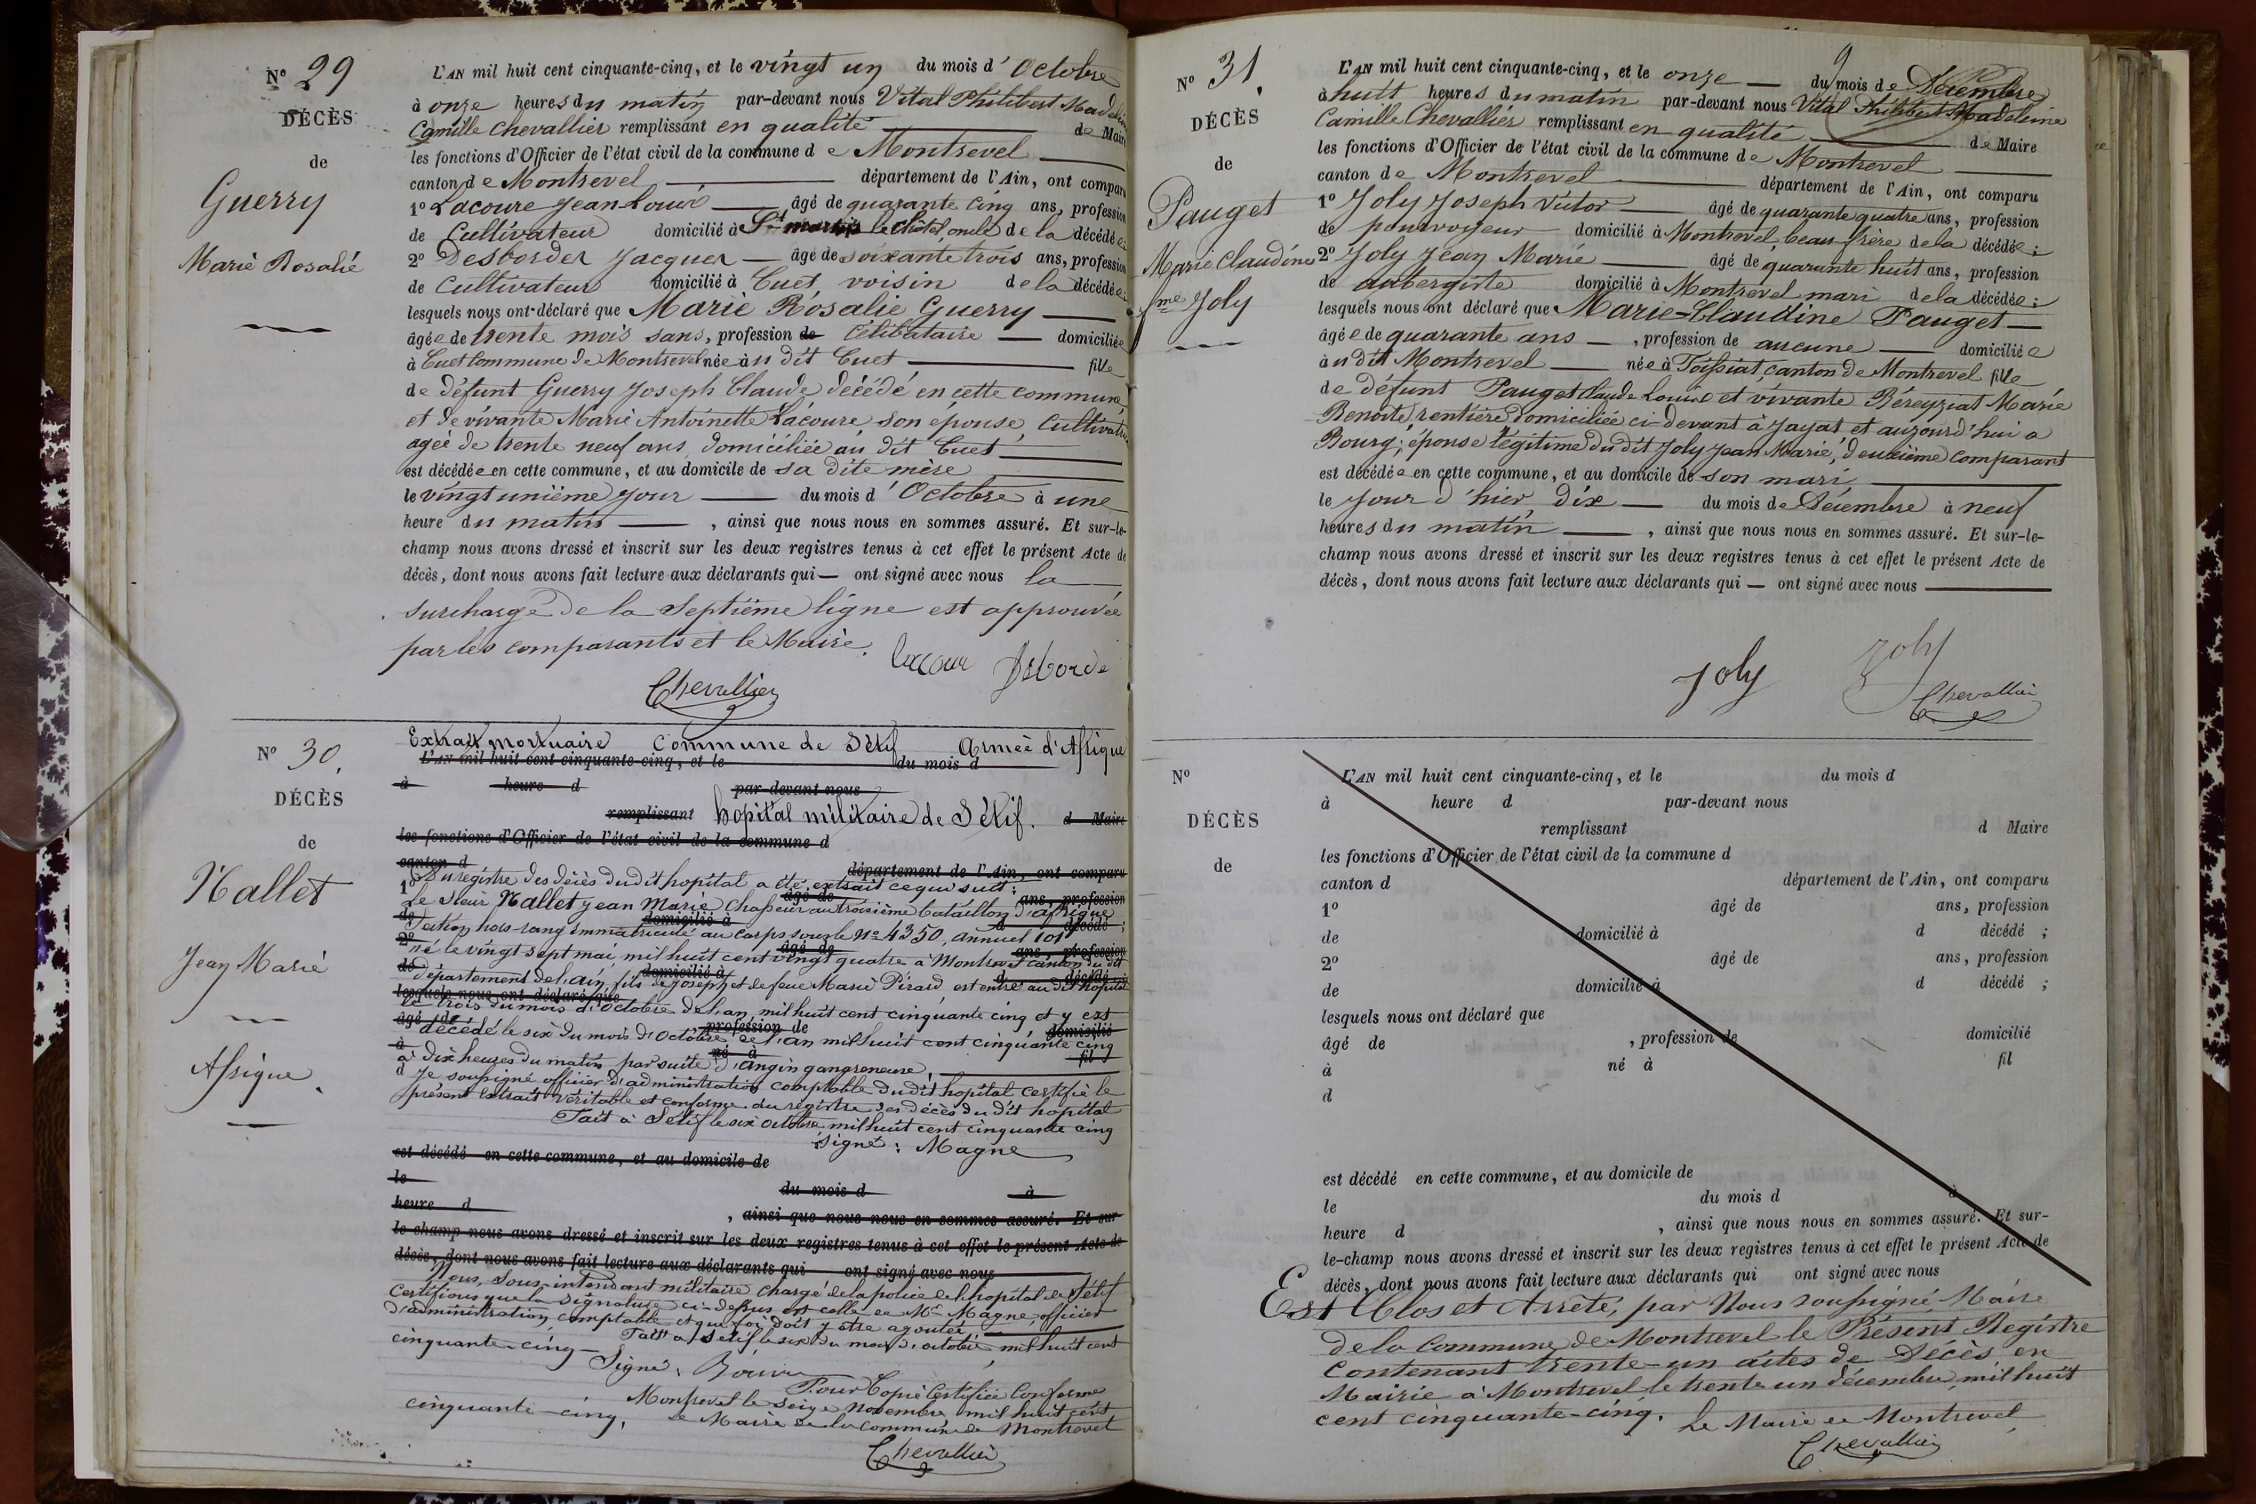 Nº 29
DÉCÈS
de
Guerry
Marie Rosalie
L'AN mil huit cent cinquante-cinq, et le vingt un du mois d'Octobre
à onze heures du matin par-devant nous Vital Philibert Madeleine
Camille Chevallier remplissant en qualité de Maire
les fonctions d'Officier de l'état civil de la commune de Montrevel
canton de Montrevel département de l'Ain, ont comparu
1º Lacoure Jean-Louis âgé de quarante cinq ans, profession
de Cultivateur domicilié à St martin le chatel oncle de la décédée
2º Desbordes Jacques âgé de soixante trois ans, profession
de Cultivateur domicilié à Cuet, voisin de la décédée
lesquels nous ont déclaré que Marie Rosalie Guerry
âgée de trente mois sans, profession de Célibataire domiciliée
à Cuet commune de Montrevel née au dit Cuet fille
de défunt Guerry Joseph Claude décédé en cette commune,
et de vivante Marie Antoinette Lacoure son épouse, Cultivatrice
agée de trente neuf ans, domiciliée au dit Cuet
est décédée en cette commune, et au domicile de sa dite mère
le vingt unième jour du mois d'Octobre à une
heure du matin, ainsi que nous nous en sommes assuré. Et sur-le-
champ nous avons dressé et inscrit sur les deux registres tenus à cet effet le présent Acte de
décès, dont nous avons fait lecture aux déclarants qui — ont signé avec nous la
surcharge de la septième ligne est approuvée
par les comparants et le Maire.
Lacour Desborde
Chevallier
Nº 30.
DÉCÈS
de
Nallet
Jean Marie
Afrique.
Extrait mortuaire Commune de Sétif Armée d'Afrique
L'AN mil huit cent cinquante-cinq, et le du mois d
à heure d par-devant nous
remplissant hopital militaire de Sétif. d Maire
les fonctions d'Officier de l'état civil de la commune d
canton d département de l'Ain, ont comparu
Du registre des décès dudit hopital a été extrait ce qui suit:
1º âgé de ans, profession
Le Sieur Nallet Jean Marie Chasseur au troisième bataillon d'afrique
de domicilié à d décédé ;
Section hors-rang immatriculé au Corps sous le Nº 4350, annuel 101
2º âgé de ans, profession
né le vingt sept mai, mil huit cent vingt quatre à Montrevel canton du dit
de domicilié à d décédé ;
département de l'ain, fils de Joseph et de feue Marie Pirard, est entré au dit hopital
lesquels nous ont déclaré que
le trois du mois d'Octobre de l'an, mil huit cent cinquante cinq et y est
âgé de profession de domicilié
décédé le six du mois d'Octobre de l'an mil huit cent cinquante cinq
à né à fil
à dix heures du matin par suite d'angin gangreneuse,
d Je soussigné officier d'administration comptable dudit hopital certifie le
présent Extrait véritable et conforme au registre des décès du dit hopital
Fait à Sétif le six octobre mil huit cent cinquante cinq
signé: Magne
est décédé en cette commune, et au domicile de
le du mois d à
heure d , ainsi que nous nous en sommes assuré. Et sur
le champ nous avons dressé et inscrit sur les deux registres tenus à cet effet le présent Acte de
décès, dont nous avons fait lecture aux déclarants qui ont signé avec nous
Nous, Sous-intendant militaire chargé de la police de l'hopital de Sétif
Certifions que la signature ci-dessus est celle de Mr Magne, officier
d'administration comptable et que foi doit y être ajoutée,
Fait à Sétif le six du mois d'octobre, mil huit cent
cinquante-cinq
Signé,
Pour Copie Certifiée Conforme
Montrevel le seize novembre mil huit cent
cinquante-cinq, Le Maire de la commune de Montrevel
Chevallier
Nº 31.
DÉCÈS
de
Pauget
Marie Claudine
fme Joly
9
L'AN mil huit cent cinquante-cinq, et le onze du mois de Décembre
à huit heures du matin par-devant nous Vital Philibert Madeleine
Camille Chevallier remplissant en qualité de Maire
les fonctions d'Officier de l'état civil de la commune de Montrevel
canton de Montrevel département de l'Ain, ont comparu
1º Joly Joseph Victor âgé de quarante quatre ans, profession
de pourvoyeur domicilié à Montrevel, beau-frère de la décédée;
2º Joly Jean Marie âgé de quarante huit ans, profession
de aubergiste domicilié à Montrevel mari de la décédée;
lesquels nous ont déclaré que Marie-Claudine Pauget
âgée de quarante ans, profession de aucune domiciliée
à u dit Montrevel née à Foissiat, canton de Montrevel fille
de défunt Pauget Claude Louis et vivante Béreyziat Marie
Benoite, rentière domiciliée ci-devant à Jayat et aujourd'hui à
Bourg; épouse légitime du dit Joly Jean Marie, deuxième comparant
est décédée en cette commune, et au domicile de son mari
le jour d'hier, dix du mois de Décembre à neuf
heures du matin, ainsi que nous nous en sommes assuré. Et sur-le-
champ nous avons dressé et inscrit sur les deux registres tenus à cet effet le présent Acte de
décès, dont nous avons fait lecture aux déclarants qui — ont signé avec nous
Joly Joly
Chevallier
Nº
DÉCÈS
de
L'AN mil huit cent cinquante-cinq, et le du mois d
à heure d par-devant nous
remplissant d Maire
les fonctions d'Officier de l'état civil de la commune d
canton d département de l'Ain, ont comparu
1º âgé de ans, profession
de domicilié à d décédé ;
2º âgé de ans, profession
de domicilié à d décédé ;
lesquels nous ont déclaré que
âgé de , profession de domicilié
à né à fil
d
est décédé en cette commune, et au domicile de
le du mois d à
heure d , ainsi que nous nous en sommes assuré. Et sur-
le-champ nous avons dressé et inscrit sur les deux registres tenus à cet effet le présent Acte de
décès, dont nous avons fait lecture aux déclarants qui ont signé avec nous
Est Clos et Arrêté, par Nous soussigné, Maire
de la Commune de Montrevel le Présent Registre
Contenant trente-un actes de Décès en
Mairie à Montrevel, le trente un décembre, mil huit
cent cinquante-cinq. Le Maire de Montrevel,
Chevallier